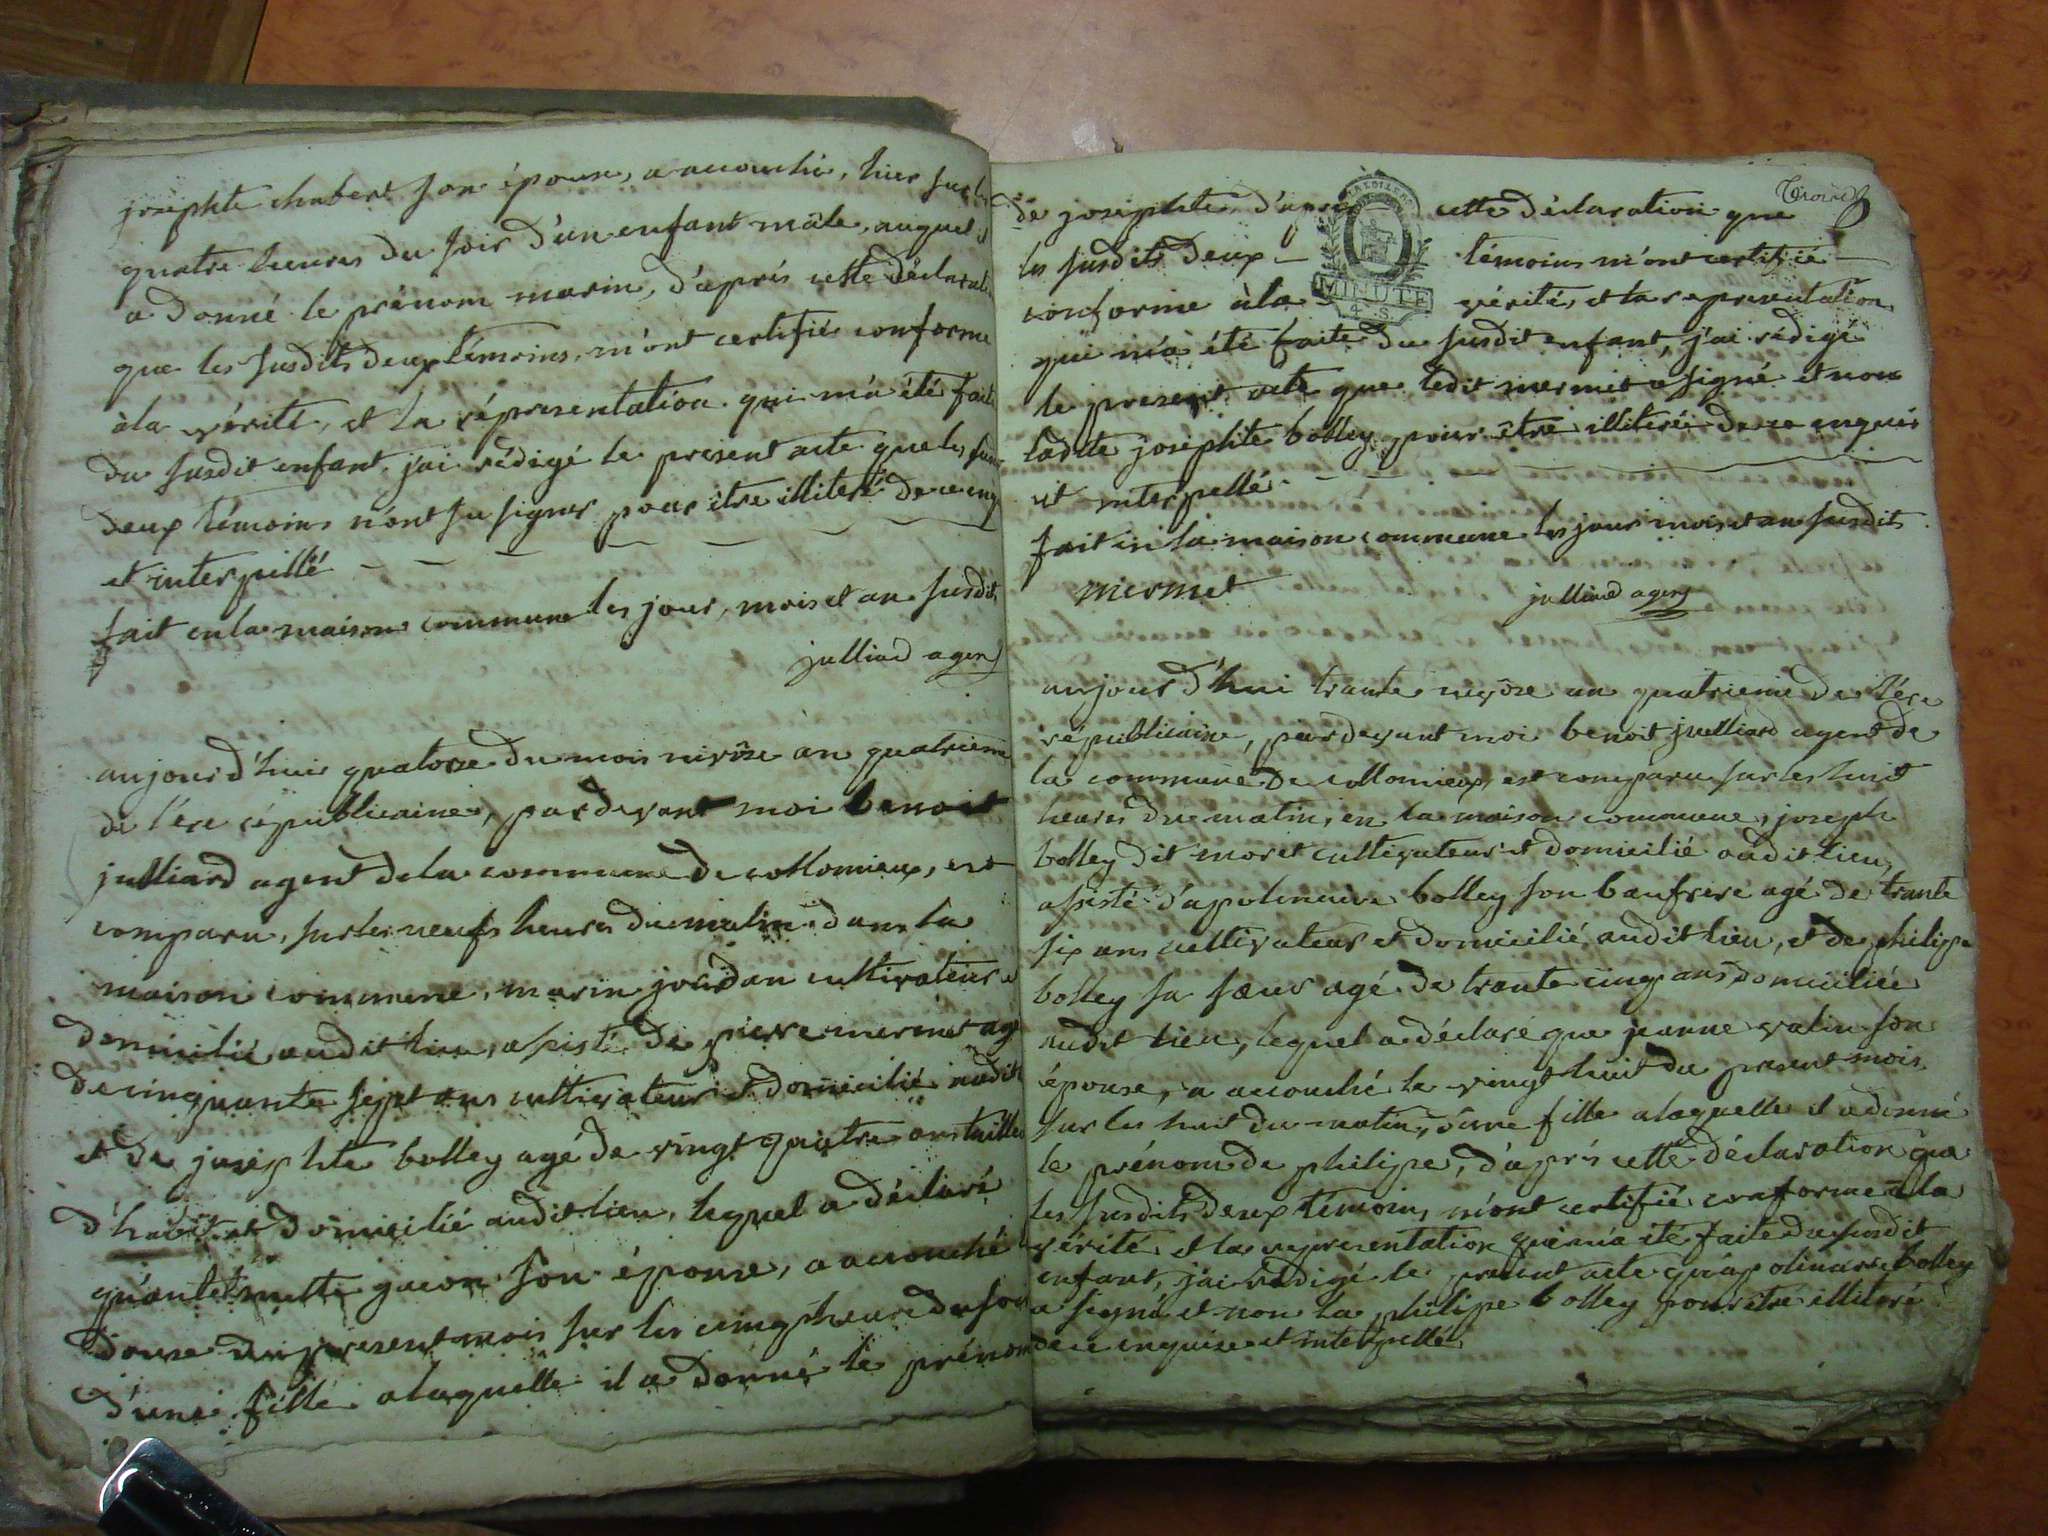 josephte chabert son épouse, a accouché, hier sur les
quatre heures du soir d'un enfant mâle, auquel il
a donné le prénom marin, d'après cette déclarati
que les susdits deux témoins, m'ont certifié conforme
à la vérité, et la représentation qui m'a été faite
du susdit enfant, j'ai rédigé le present acte que les
deux témoins n'ont su signer pour être illiteré de ce enq
et interpellé
fait en la maison commune les jour, mois et an susdits
julliard agent
aujourd'hui quatorze du mois nivôse an quatrieme
de l'ére républicaine, pardevant moi benoit
julliard agent de la commune de collomieux, est
comparu, sur les neufs heures du matin dans la
maison commune, marin jourdan cultivateur et
domicilié audit lieu, assisté de pierre mermet agé
de cinquante sept ans cultivateur et domicilié audit
et de josephte bolley agé de vingt quatre ans tailleu
d'habit et domicilié audit lieu, lequel a déclaré
qu'antelmette gacon son épouse, a accouché le
douze du present mois sur les cinq heure du soir
d'une fille a laquelle il a donné le prénom
Trois
de josephte, d'après cette déclaration que
les susdits deux témoins m'ont certifié
MINUTE
4. S.
conforme à la vérité, et la representation
qui m'a été faite du susdit enfant, j'ai rédigé
le present acte que ledit mermet a signé et non
ladite josephte bolley pour être illiterée de ce enquis
et interpellé
fait en la maison commune les jour mois et an susdits
mermet julliard agent
aujourd'hui trante nivôse an quatrieme de l'ére
républicaine, pardevant moi benoit julliard agent de
la commune de collomieux, est comparu sur les huit
heures du matin, en la maison commune, joseph
bolley dit moret cultivateur et domicilié audit lieu,
assisté d'apolinaire bolley son baufrere agé de trante
six ans cultivateur et domicilié audit lieu, et de philippe
bolley sa sœur agé de trante cinq ans domiciliée
audit lieu, lequel a déclaré que jeanne valin son
épouse, a accouché le vingt huit du present mois
sur les huit du matin, d'une fille a laquelle il a donné
le prénom de philippe, d'après cette déclaration que
les susdits deux témoins m'ont certifié conforme à la
vérité et la representation qui m'a été faite du susdit
enfant, j'ai rédigé le present acte qu'apolinaire bolley
a signé et non la philippe bolley pour être illiteré
de ce enquise et interpellé